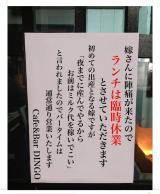 嫁さんに陣痛が来たので
ランチは臨時休業
とさせていただきます
初めての出産となる嫁ですが
「夜までに産んでやるから、
お前はミルク代を稼いでこい」
と言われましたのでバータイムは
通常通り営業いたします
Cafe&Bar DINGO